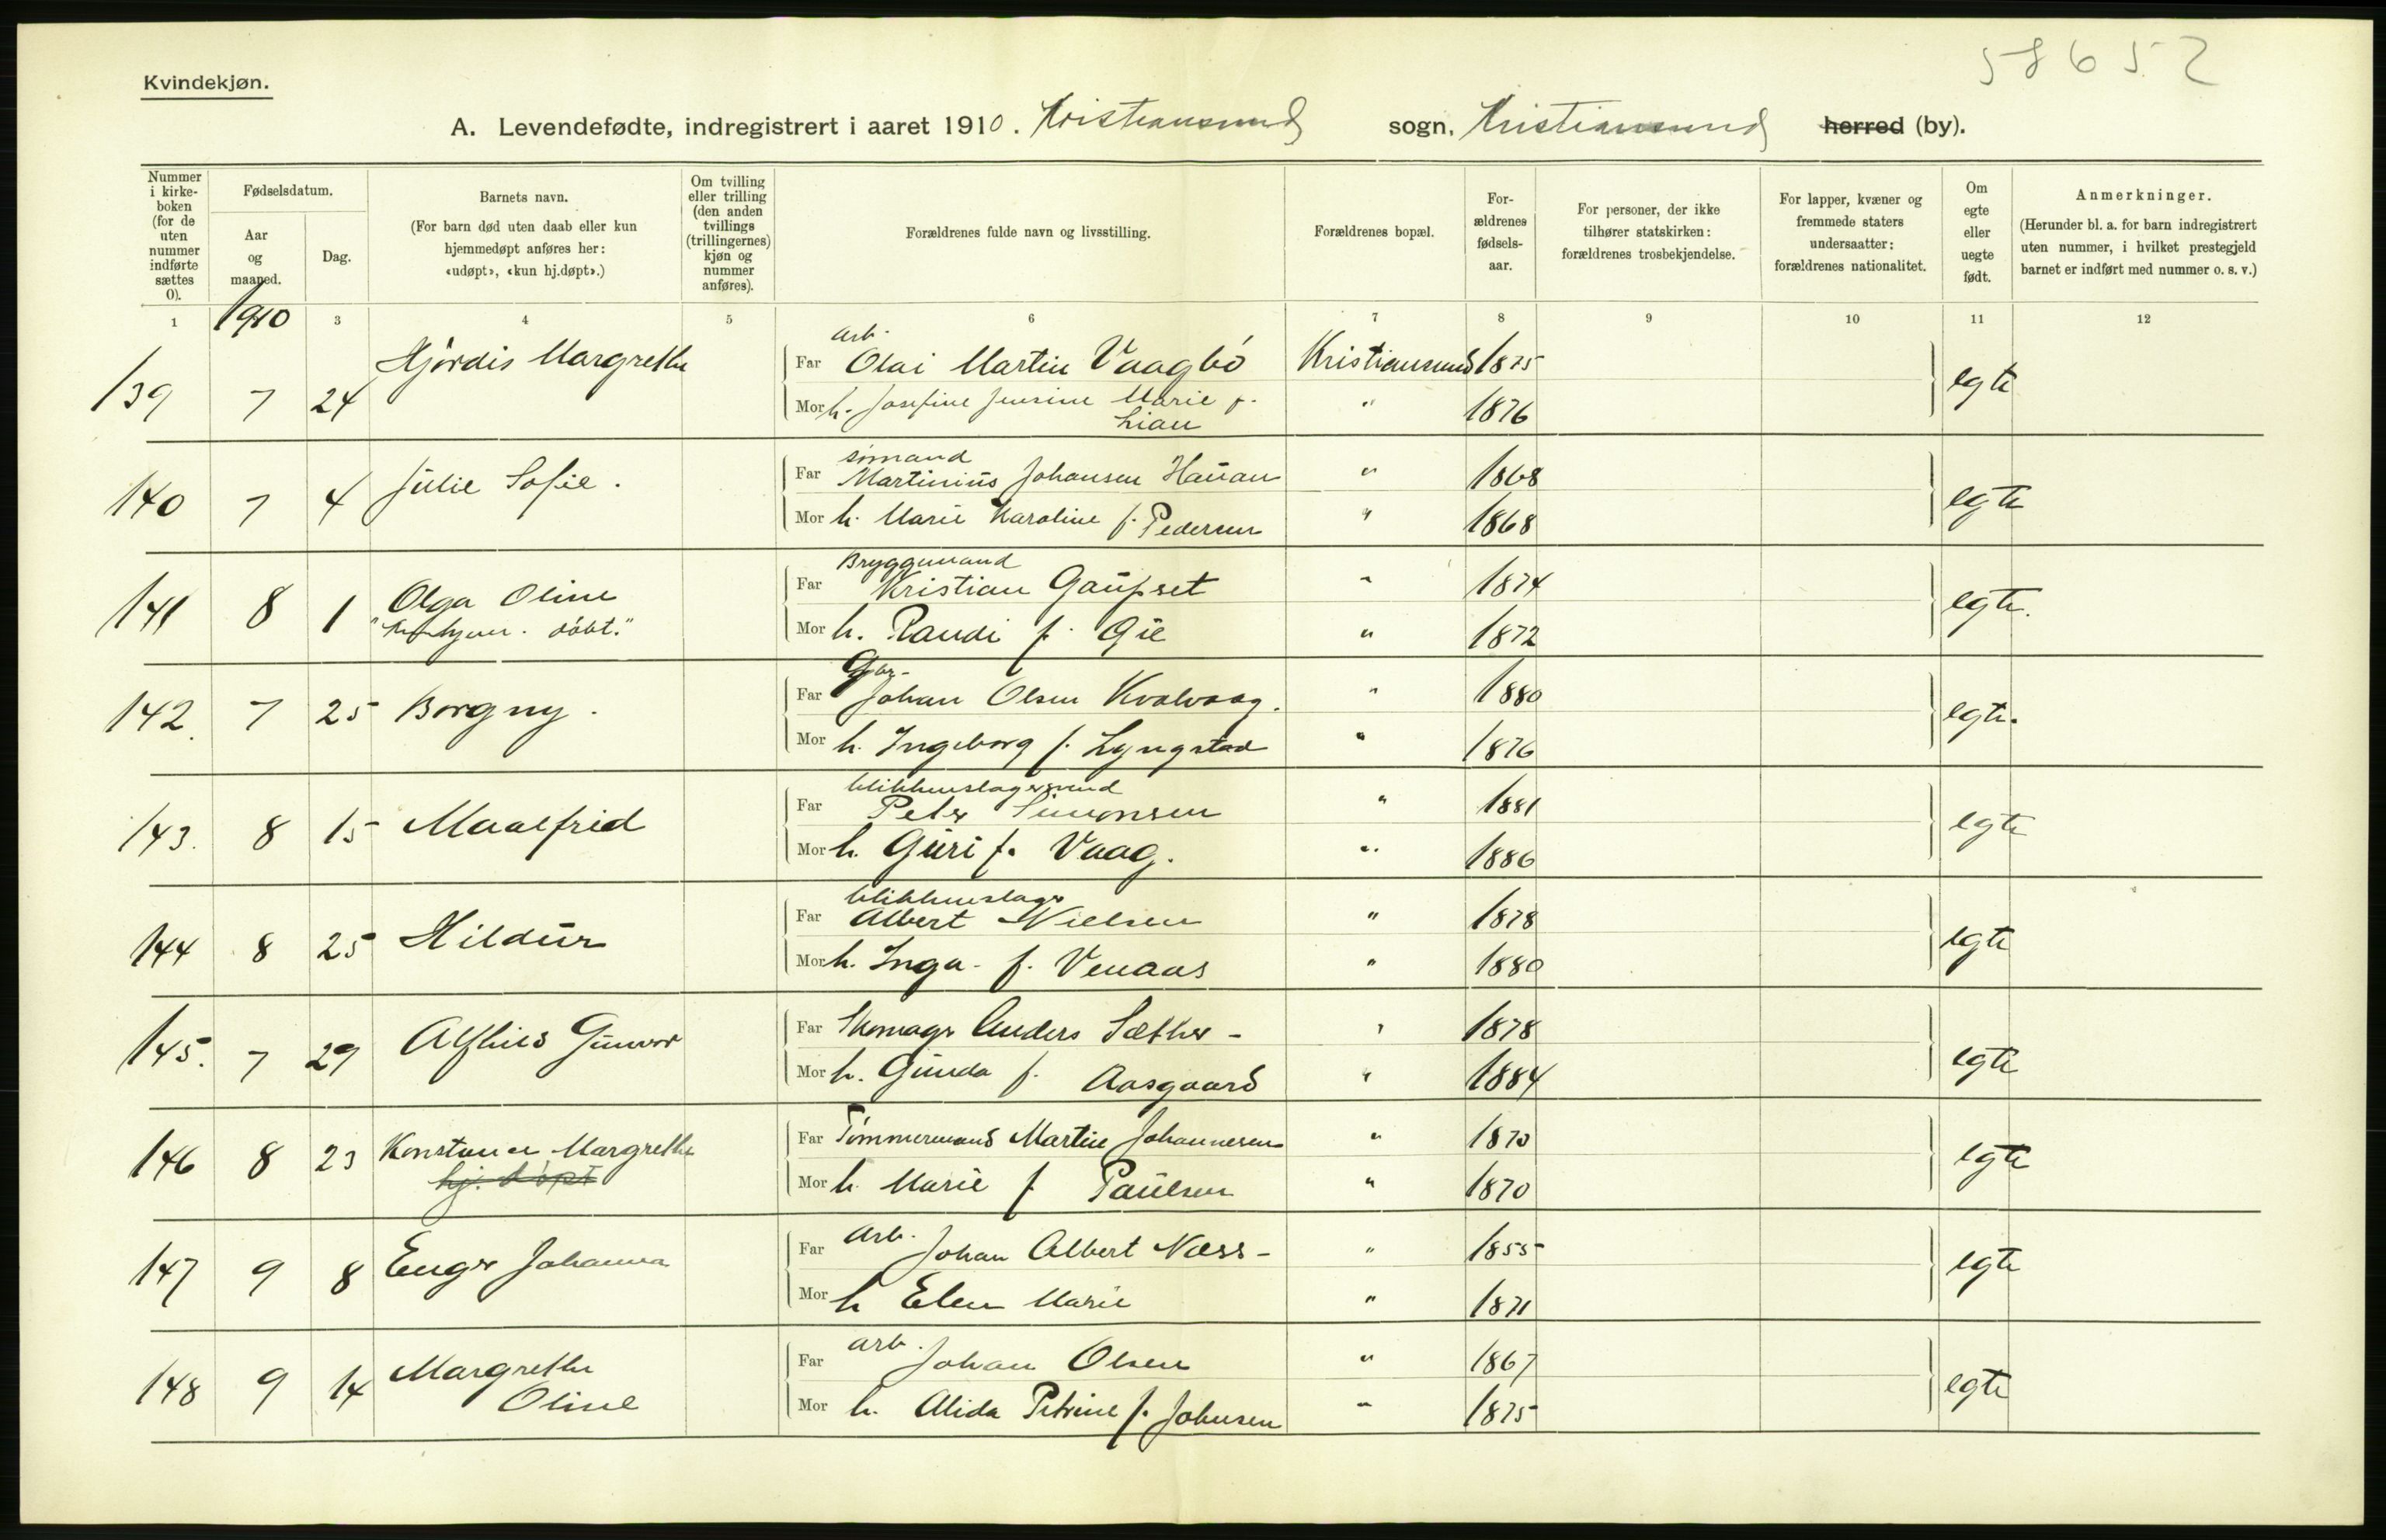 58652
Kvindekjøn.
A. Levendefødte, indregistrert i aaret 1910. Kristiansund sogn, Kristiansund herred (by).
Nummer i kirkeboken (for de uten nummer indførte sættes 0).
Fødselsdatum.
Aar og maaned.
Dag.
Barnets navn.
(For barn død uten daab eller kun hjemmedøpt anføres her: «udøpt», «kun hj.døpt».)
Om tvilling eller trilling (den anden tvillings (trillingernes) kjøn og nummer anføres).
Forældrenes fulde navn og livsstilling.
Forældrenes bopæl.
Forældrenes fødselsaar.
For personer, der ikke tilhører statskirken: forældrenes trosbekjendelse.
For lapper, kvæner og fremmede staters undersaatter: forældrenes nationalitet.
Om egte eller uegte født.
Anmerkninger.
(Herunder bl. a. for barn indregistrert uten nummer, i hvilket prestegjeld barnet er indført med nummer o. s. v.)
1 1910 3 4 5 6 7 8 9 10 11 12
139 7 24 Hjördis Margrethe
Arb.
Far Olai Martin Vaagbö Kristiansund 1875 egte
Mor h. Josefine Jensine Marie f. Lian " 1876
140 7 4 Julie Sofie.
sömand
Far Martinius Johansen Hauan " 1868 egte
Mor h. Marie Karoline f. Pedersen " 1868
141 8 1 Olga Oline
döbt."
Bryggemand
Far Kristian Gaupset " 1874 egte.
Mor h. Randi f. Gie " 1872
142. 7 25 Borgny.
Far Johan Olsen Kvalvaag. " 1880 egte.
Mor h. Ingeborg f. Lyngstad " 1876
143. 8 15 Maalfrid
blikkenslagersvend
Far Peter Simonsen " 1881 egte
Mor h. Guri f. Vaag. " 1886
144 8 25 Hildur
blikkenslager
Far Albert Nielsen " 1878 egte
Mor h. Inga f. Venaas " 1880
145. 7 29 Alfhild Gunvor
Far Skomager Anders Sæther - " 1878 egte
Mor h. Gunda f. Aasgaard " 1884
146 8 23 Konstance Margrethe
hj. döpt
Far Tömmermand Martin Johannesen " 1870 egte
Mor h. Marie f Paulsen " 1870
147 9 8 Enger Johanna
Arb.
Far Johan Albert Næss - " 1855 egte
Mor h Elen Marie " 1871
148 9 14 Margrethe Oline
arb.
Far Johan Olsen " 1867 egte
Mor h. Alida Petrine f. Johnsen " 1875